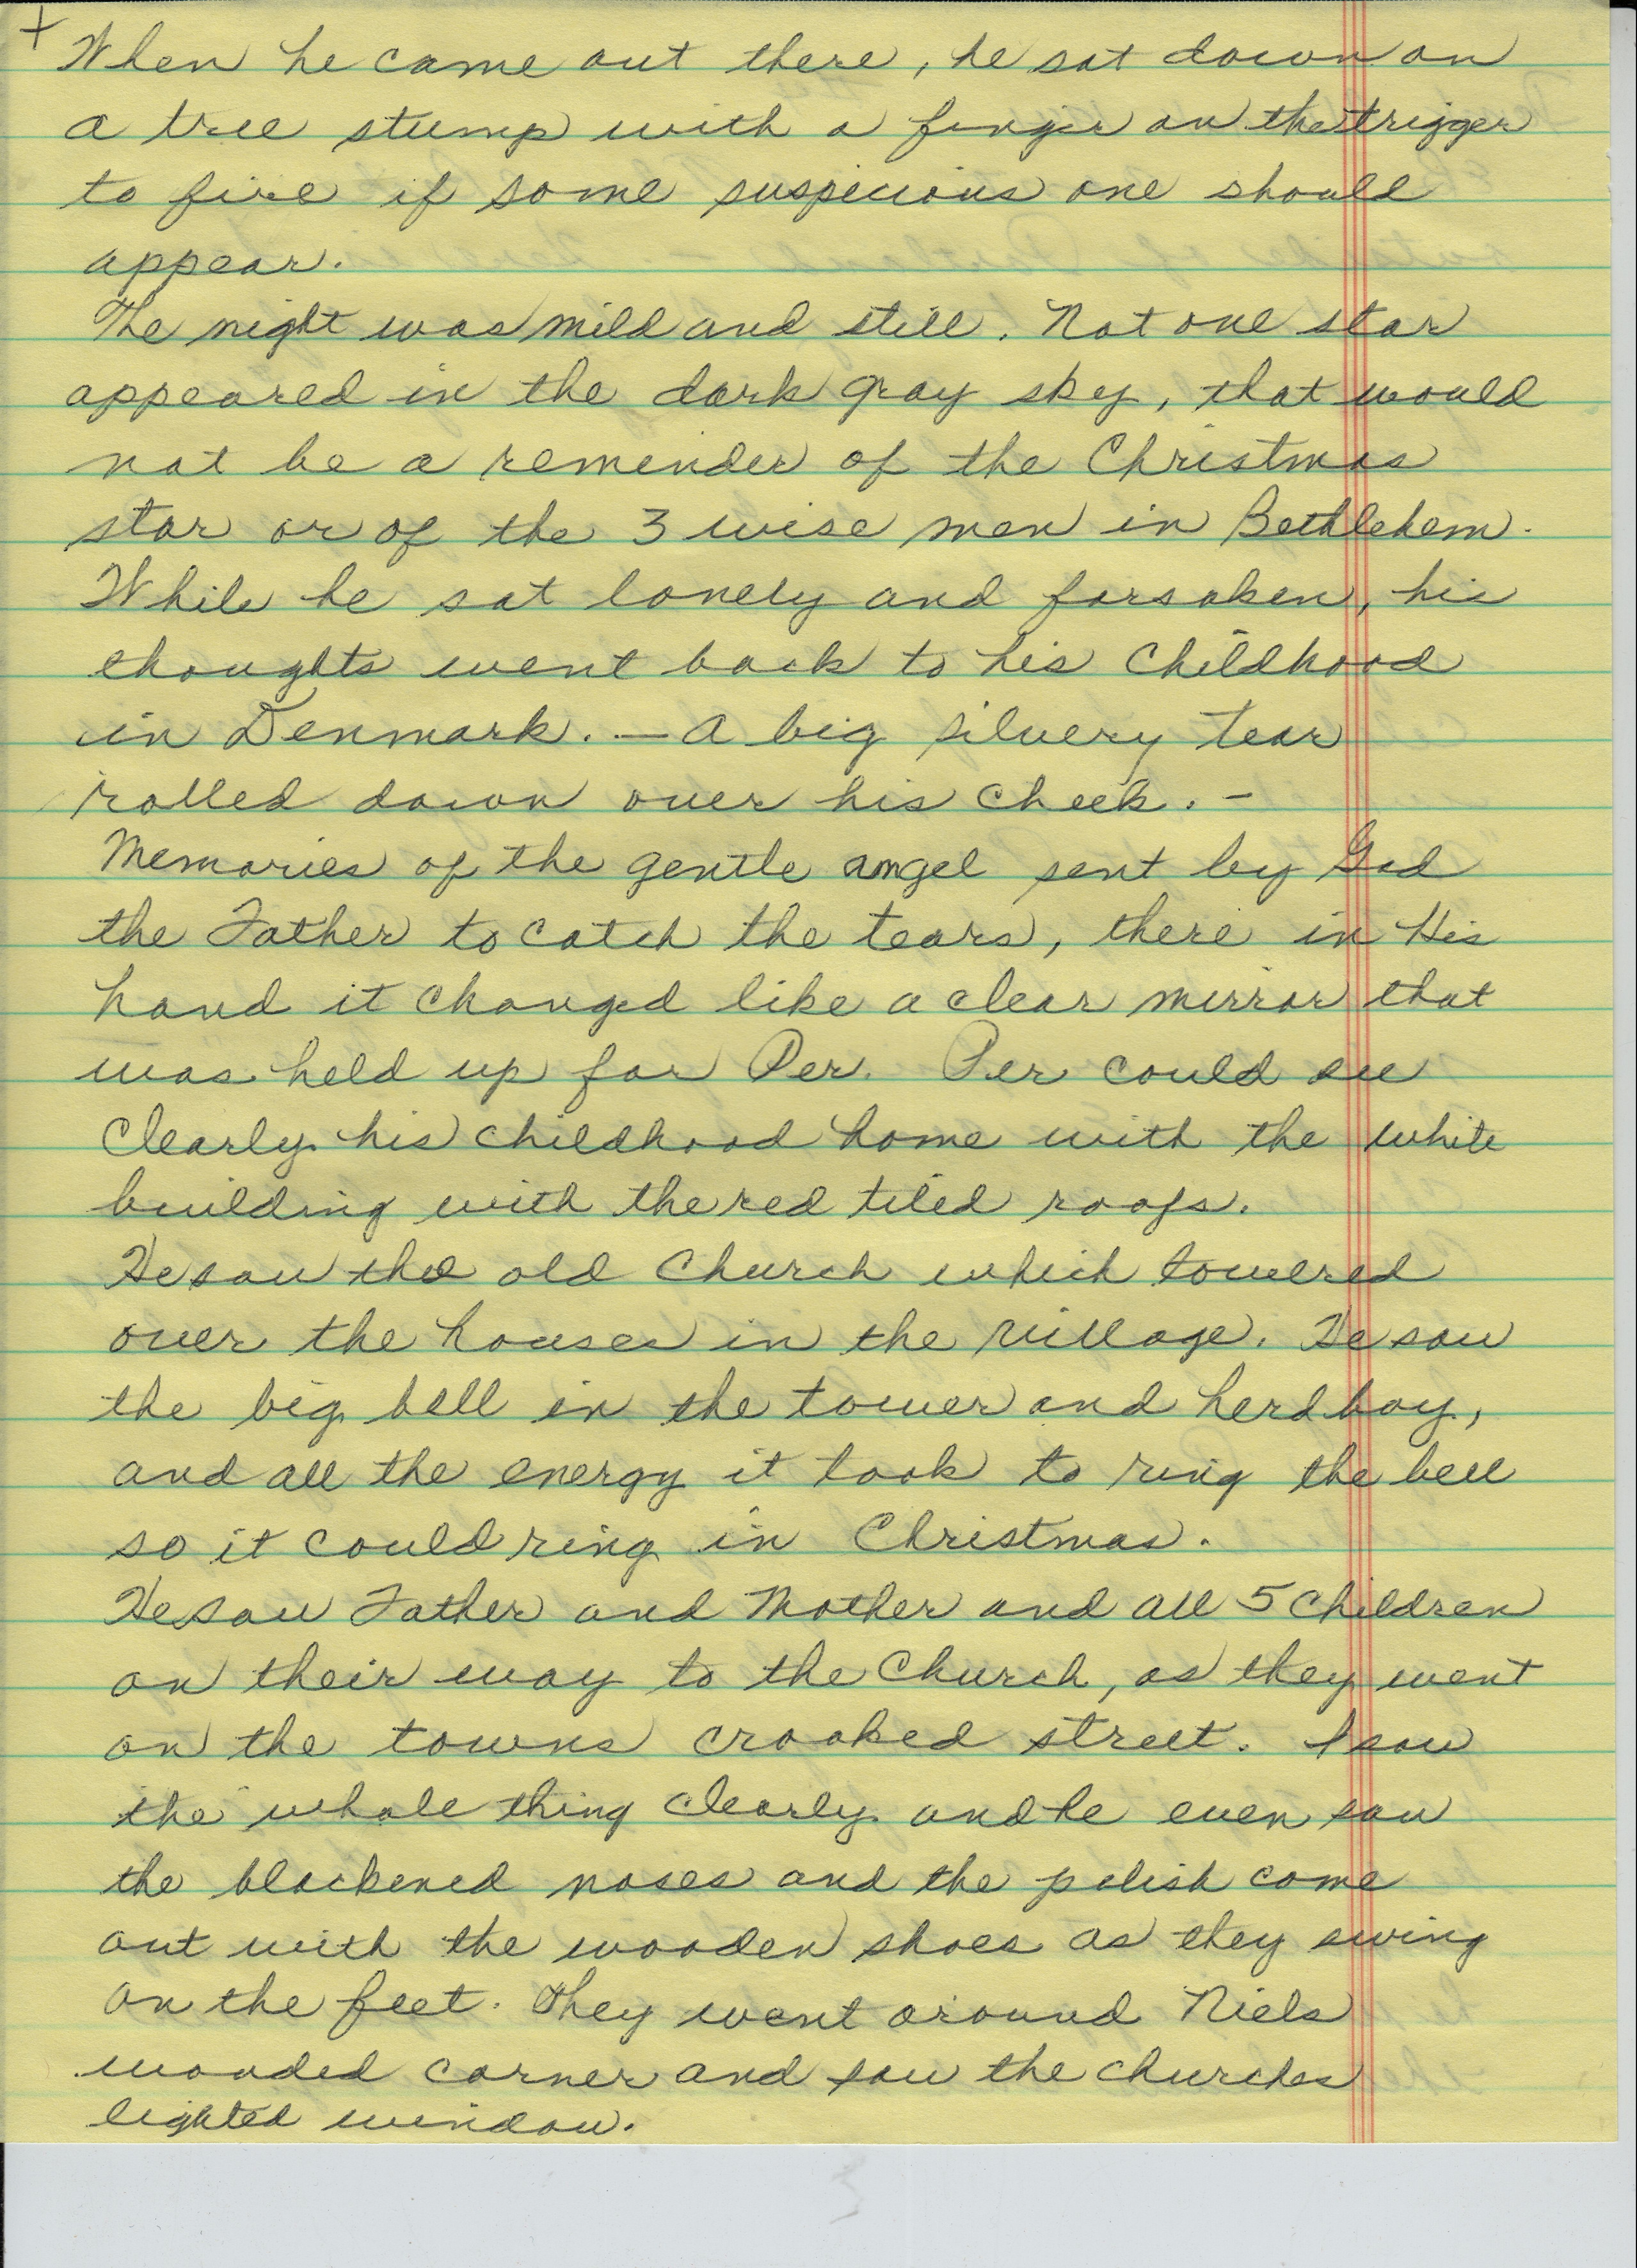 +
When he came out there, he sat down on
a tree stump with a finger on the trigger
to fire if some suspicious one should
appear.
The night was mild and still. Not one star
appeared in the dark gray sky, that would
not be a reminder of the Christmas
star or of the 3 wise men in Bethlehem.
While he sat lonely and forsaken, his
thoughts went back to his childhood
in Denmark. — A big silvery tear
rolled down over his cheek. –
Memories of the gentle angel sent by God
the Father to catch the tears, there in His
hand it changed like a clear mirror that
was held up for Per. Per could see
clearly his childhood home with the white
building with the red tiled roofs.
He saw the old church which towered
over the houses in the village. He saw
the big bell in the tower and herd boy,
and all the energy it took to ring the bell
so it could ring in Christmas.
He saw Father and Mother and all 5 children
on their way to the church, as they went
on the towns crooked street. I saw
the whole thing clearly and he even saw
the blackened noses and the polish come
out with the wooden shoes as they swing
on the feet. They went around Niels
wooded corner and saw the churches
lighted window.